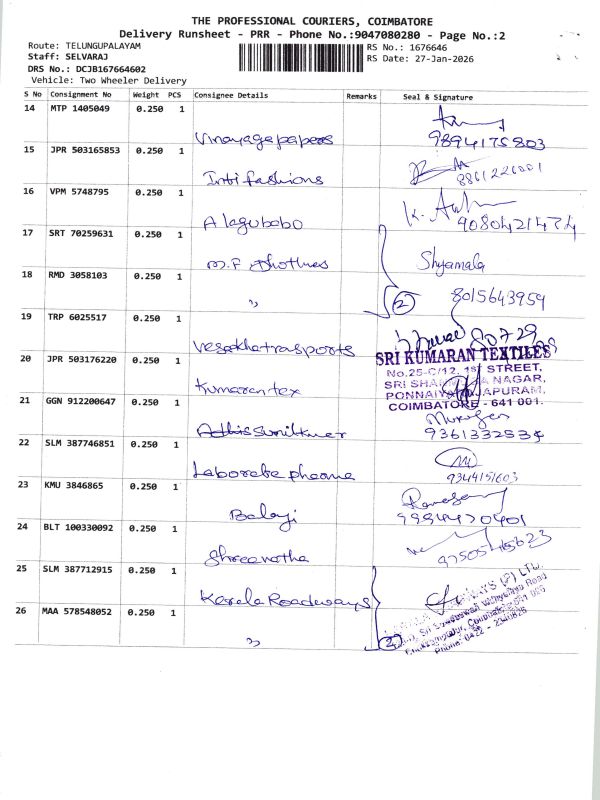 THE PROFESSIONAL COURIERS, COIMBATORE
Delivery Runsheet - PRR - Phone No.:9047080280 - Page No.:2
Route: TELUNGUPALAYAM
RS No.: 1676646
Staff: SELVARAJ
RS Date: 27-Jan-2026
DRS No.: DCJB167664602
Vehicle: Two Wheeler Delivery
S No Consignment No Weight PCS Consignee Details Remarks Seal & Signature
14 MTP 1405049 0.250 1
Vinayagapapers 9894175803
15 JPR 503165853 0.250 1
Inti fashions 8861226001
16 VPM 5748795 0.250 1
Alagubobo 9080421474
17 SRT 70259631 0.250 1
M.F Shyamala
18 RMD 3058103 0.250 1
" 2 8015643959
19 TRP 6025517 0.250 1
80729
20 JPR 503176220 0.250 1
Kumarantex
SRI KUMARAN TEXTILES
No.25-C/12, 1st STREET,
NAGAR,
COIMBATORE - 641 001.
21 GGN 912200647 0.250 1
Murugan
9361332534
22 SLM 387746851 0.250 1
Laborate pheama 9344151603
23 KMU 3846865 0.250 1
Balaji 9994470401
24 BLT 100330092 0.250 1
Shreenatha
25 SLM 387712915 0.250 1
Kerala Roadways
(P) LTD.
26 MAA 578548052 0.250 1
" 2